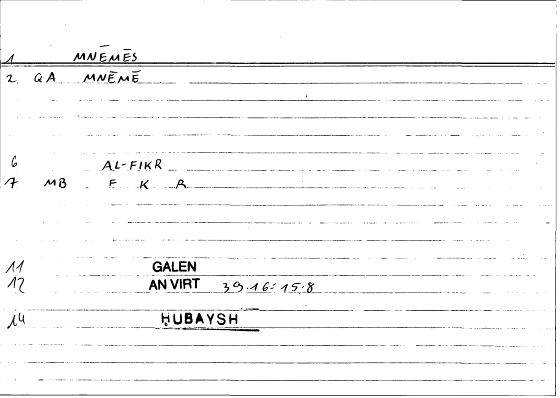 1 MNĒMĒS
2 QA MNĒMĒ
6 AL-FIKR
7 MB F K R
11 GALEN
12 AN VIRT 39.16:15.8
14 ḤUBAYSH